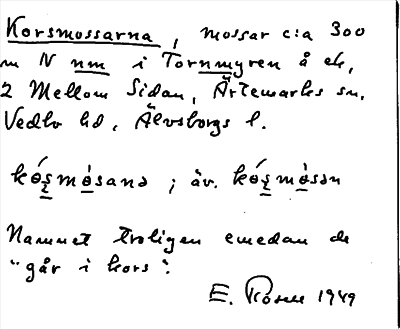 Korsmossarna, mossar c:a 300
m N nm i Tornmyren å ek,
2 Mellom Sidan, Ärtemarks sn,
Vedbo hd, Älvsborgs l.
kåʂmòsanə ; äv. kåʂmòsən
Namnet troligen emedan de
"går i kors".
E. Rosell 1949